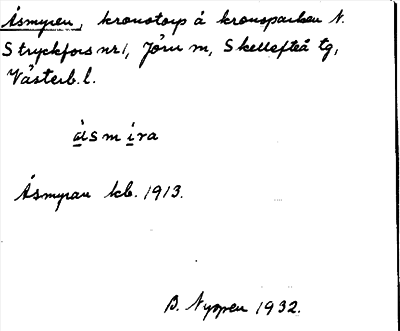 Åsmyran, kronotorp å kronoparken N.
Stryckfors nr 1, Jörn sn, Skellefteå tg,
Västerb. l.
åsmira
Åsmyran kb. 1913.
B. Nyqvist 1932.